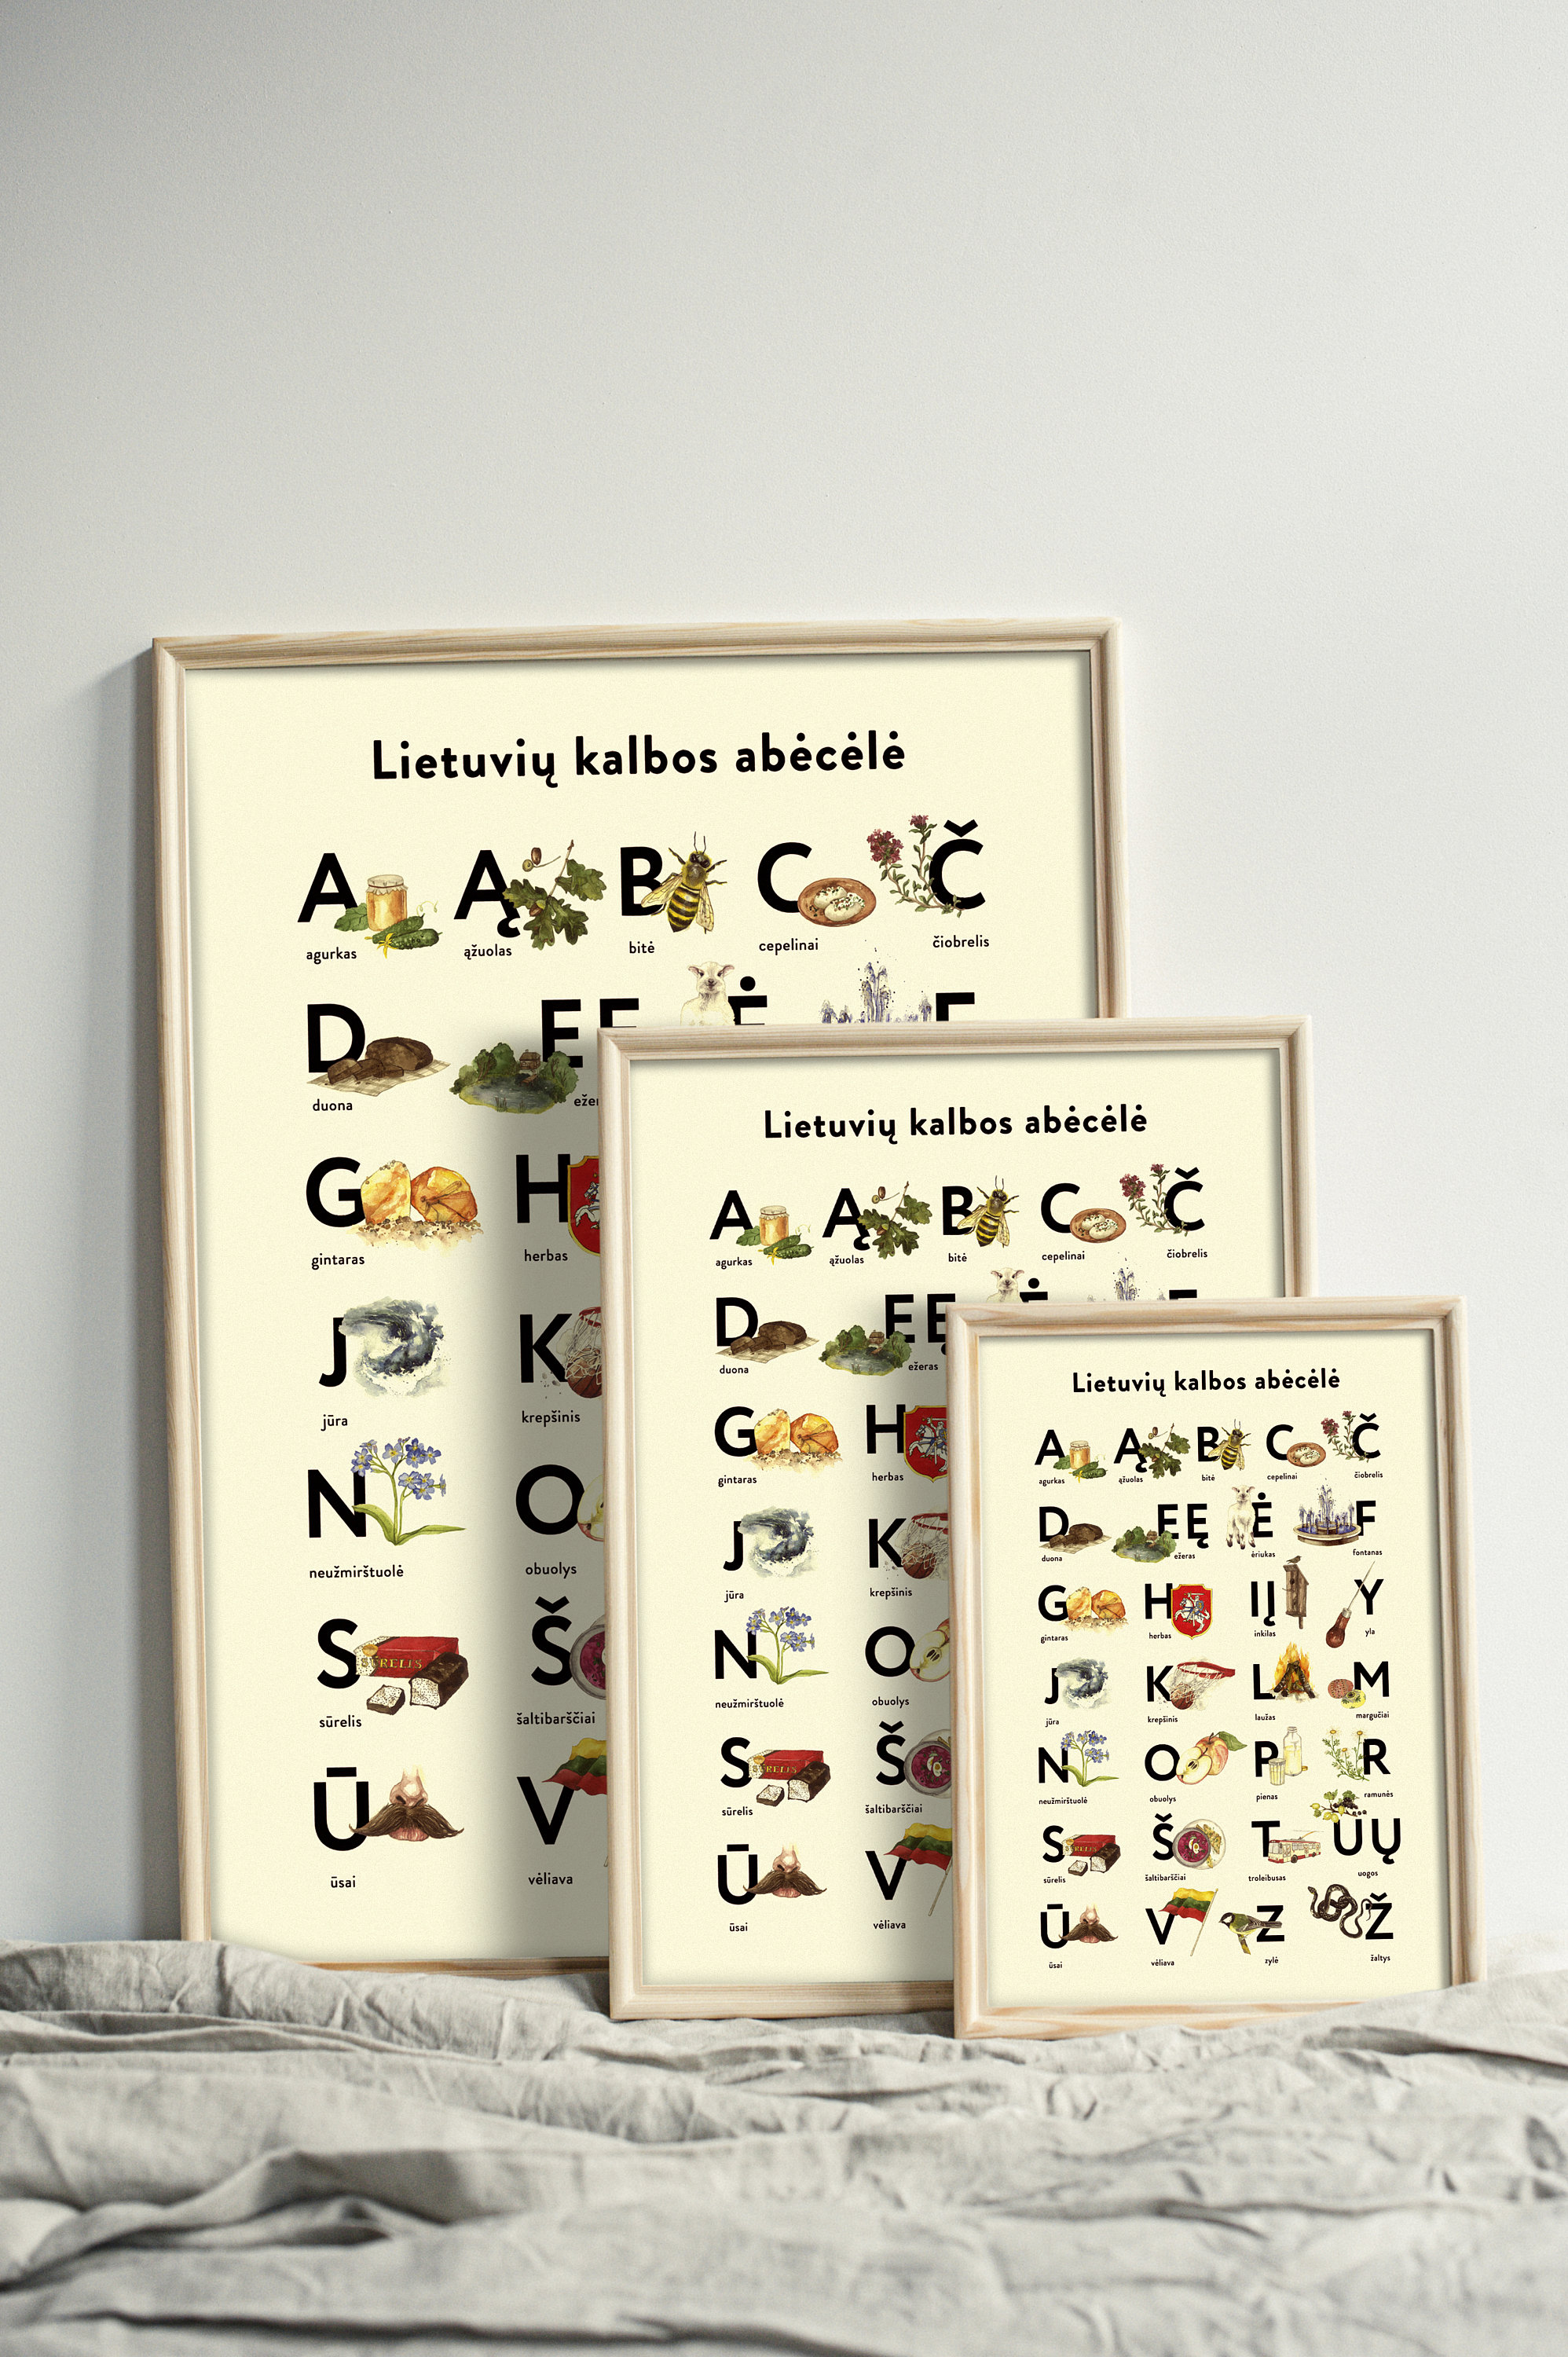 Lietuvių kalbos abėcėlė
A Ą B C Č
agurkas ąžuolas bitė cepelinai čiobrelis
D E Ę Ė F
duona
G H
gintaras herbas
J K
jūra krepšinis
N O
neužmirštuolė obuolys
S SŪRELIS Š
sūrelis šaltibarščiai
Ū V
ūsai vėliava
Lietuvių kalbos abėcėlė
A Ą B C Č
agurkas ąžuolas bitė cepelinai čiobrelis
D E Ę Ė F
duona ežeras
G H
gintaras herbas
J K
jūra krepšinis
N O
neužmirštuolė obuolys
S SŪRELIS Š
sūrelis šaltibarščiai
Ū V
ūsai vėliava
Lietuvių kalbos abėcėlė
A Ą B C Č
agurkas ąžuolas bitė cepelinai čiobrelis
D E Ę Ė F
duona ežeras ėriukas fontanas
G H I Į Y
gintaras herbas inkilas yla
J K L M
jūra krepšinis laužas margučiai
N O P R
neužmirštuolė obuolys pienas ramunės
S SŪRELIS Š T U Ų
sūrelis šaltibarščiai troleibusas uogos
Ū V Z Ž
ūsai vėliava zylė žaltys